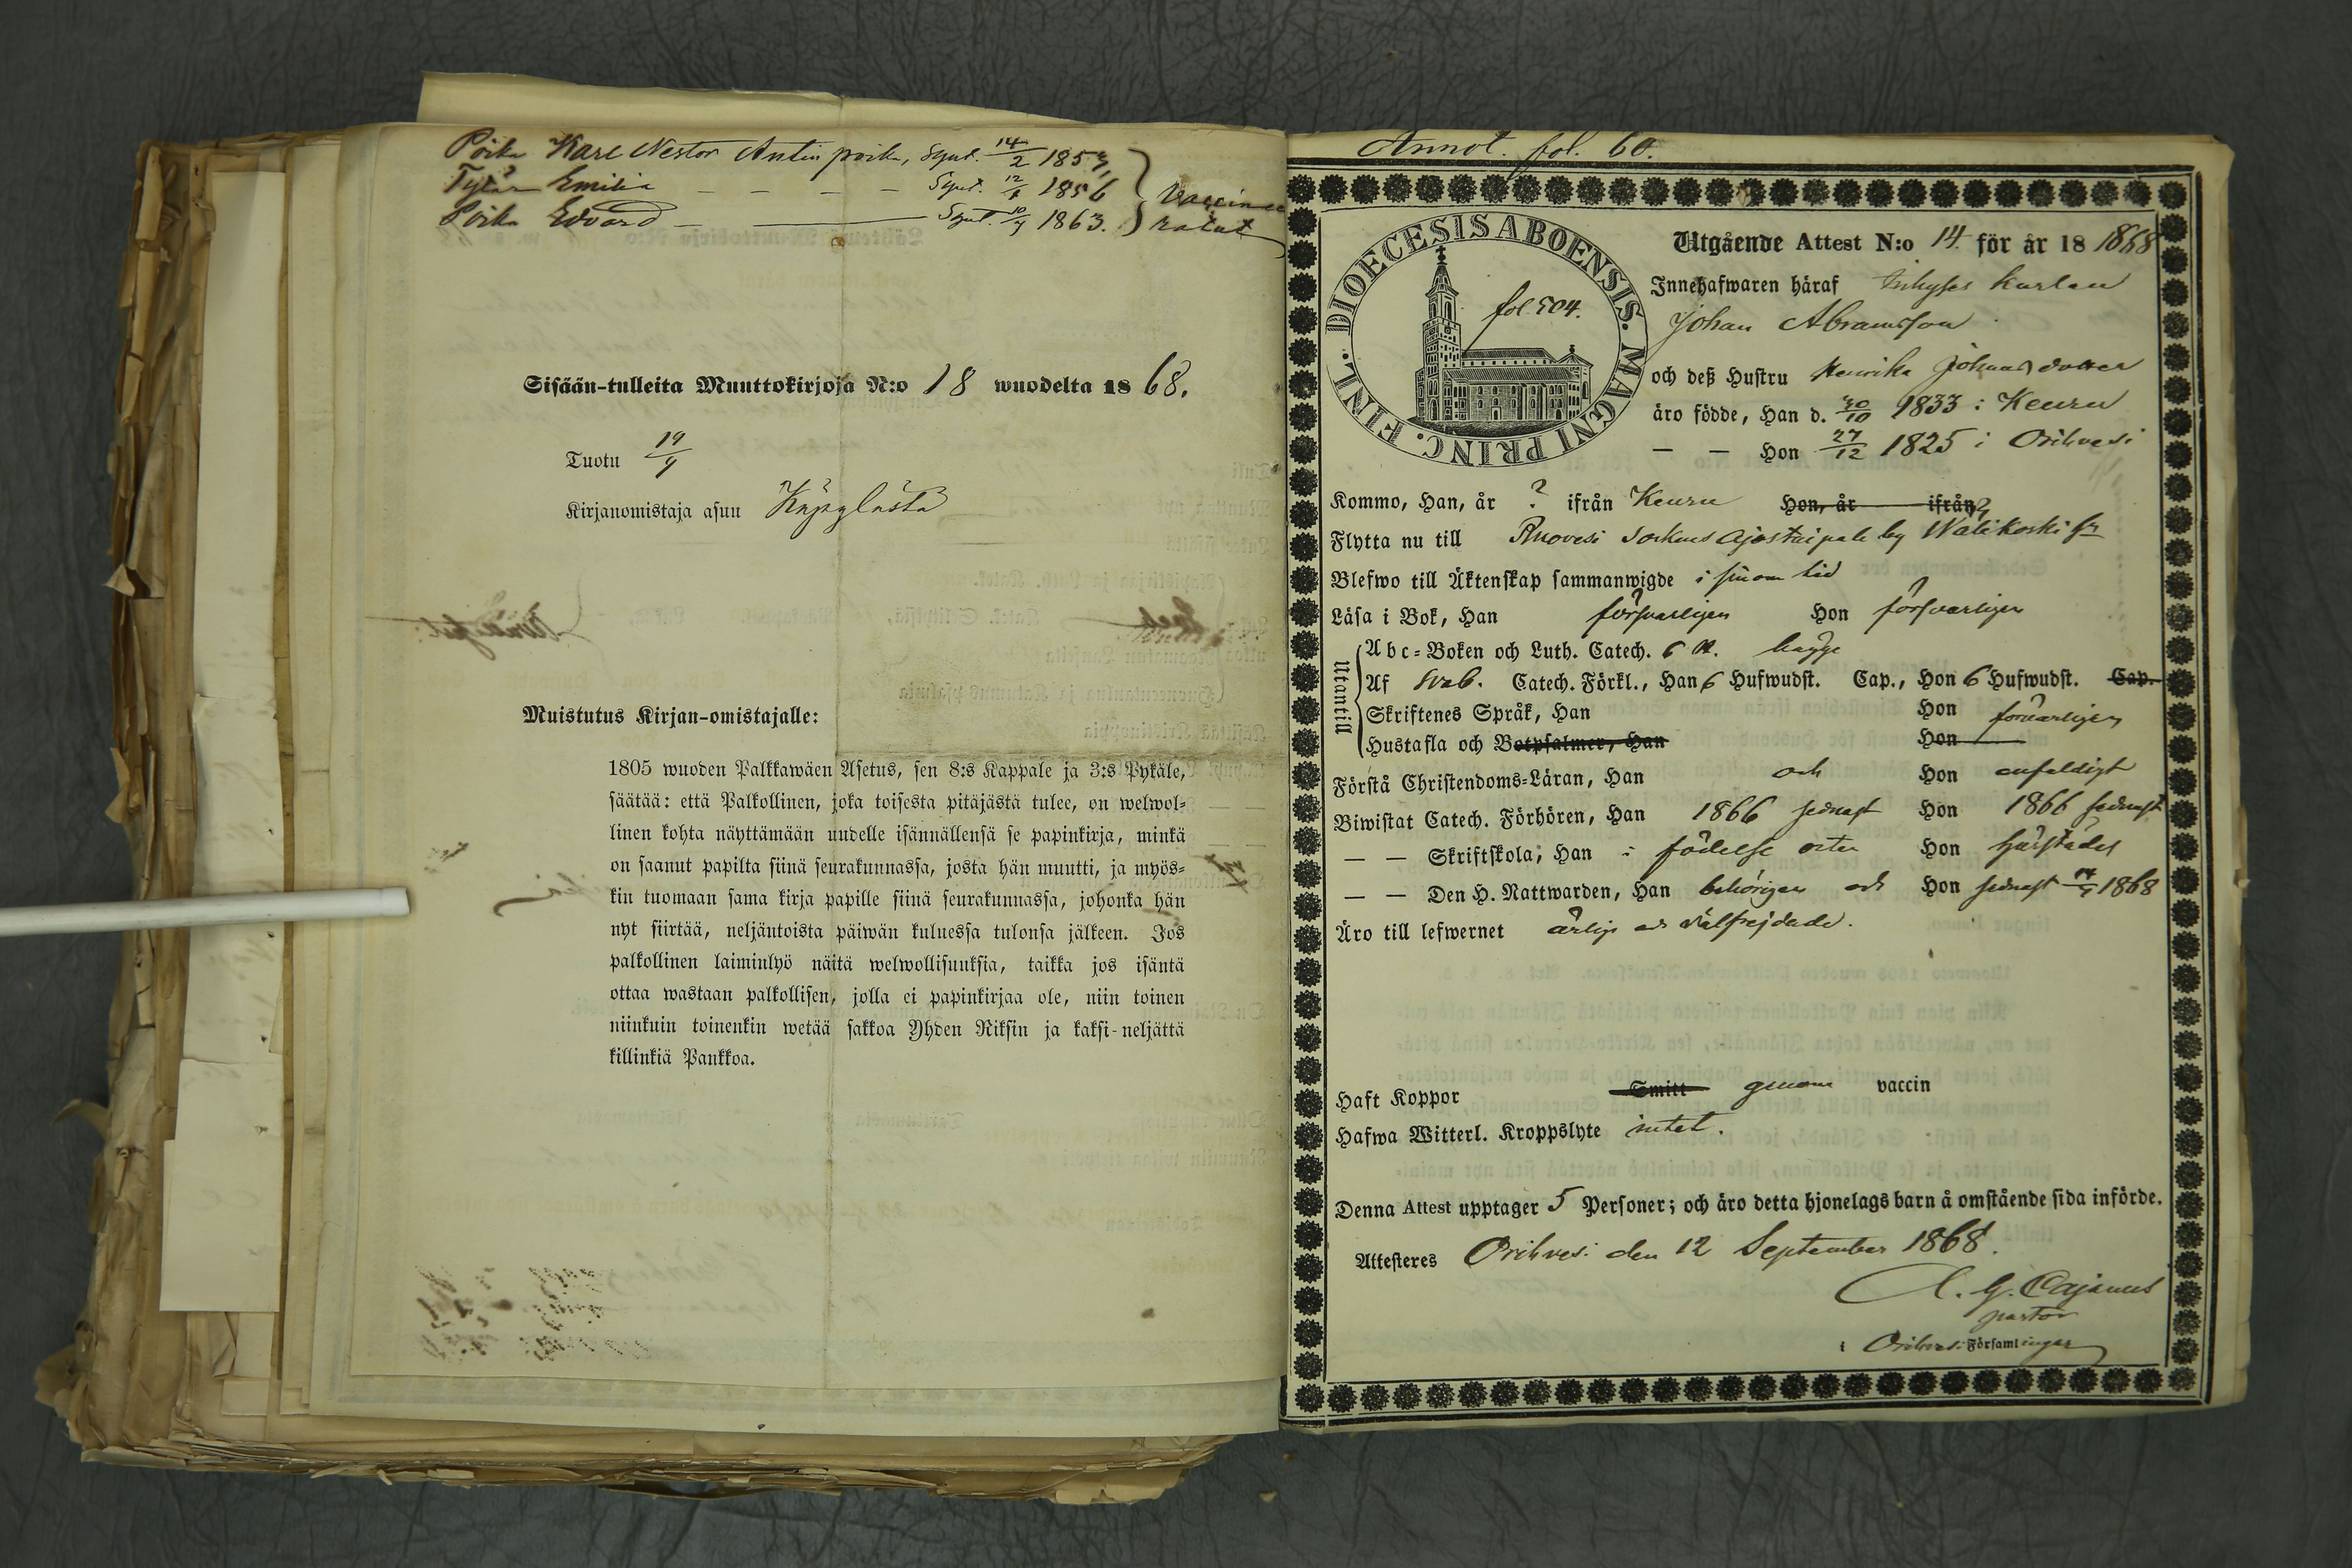 Poika Karl Nestor Antin poika, Synt. 14/2 1853
Tytär Emilia — — — — Synt. 1856
Poika Edvard — — Synt. 1863.
Vaccinee
ratut
Sisään-tulleita Muuttokirjoja N:o 18 wuodelta 18 68.
Tuotu 19/9
Kirjanomistaja asuu
Muistutus Kirjan-omistajalle:
1805 wuoden Palkkawäen Asetus, sen 8:s Kappale ja 3:s Pykäle,
säätää: että Palkollinen, joka toisesta pitäjästä tulee, on welwol=
linen kohta näyttämään uudelle isännällensä se papinkirja, minkä
on saanut papilta siinä seurakunnassa, josta hän muutti, ja myös=
kin tuomaan sama kirja papille siinä seurakunnassa, johonka hän
nyt siirtää, neljäntoista päiwän kuluessa tulonsa jälkeen. Jos
palkollinen laiminlyö näitä welwollisuuksia, taikka jos isäntä
ottaa wastaan palkollisen, jolla ei papinkirjaa ole, niin toinen
niinkuin toinenkin wetää sakkoa Yhden Riksin ja kaksi-neljättä
killinkiä Pankkoa.
Annot. fol. 60.
DIOECESIS ABOENSIS. MAGNI PRINC. FINL.
fol. 504.
Utgående Attest N:o 14. för år 18 1868
Innehafwaren häraf Inhyses karlen
Johan Abramsson
och deß Hustru Henrika Johansdotter
äro födde, Han d. 30/10 1833 i Keuru
— — Hon 27/12 1825 i Orihvesi
Kommo, Han, år ? ifrån Keuru Hon, år ifrån
Flytta nu till Ruovesi Sockens Ajostaipale by Wälikoski
Blefwo till Äktenskap sammanwigde i sinom tid
Läsa i Bok, Han försvarligen Hon försvarligen
Utantill
Abc=Boken och Luth. Catech. 6 st. begge
Af Sveb. Catech. Förkl., Han 6 Hufwudst. Cap., Hon 6 Hufwudst. Cap.
Skriftenes Språk, Han Hon försvarligen
Hustafla och Botpsalmer, Han Hon
Förstå Christendoms=Läran, Han och Hon enfaldigt
Biwistat Catech. Förhören, Han 1866 sednast Hon 1866 sednast
— — Skriftskola, Han i födelse orten Hon härstädes
— — Den H. Nattwarden, Han behörigen och Hon sednast 1868
Äro till lefwernet ärlige och välfrejdade.
Haft Koppor Smitt genom vaccin
Hafwa Witterl. Kroppslyte intet.
Denna Attest upptager 5 Personer; och äro detta hjonelags barn å omstående sida införde.
Attesteres Orihvesi den 12 September 1868.
A. G. Cajanus
pastor
i Orihvesi Församlingar